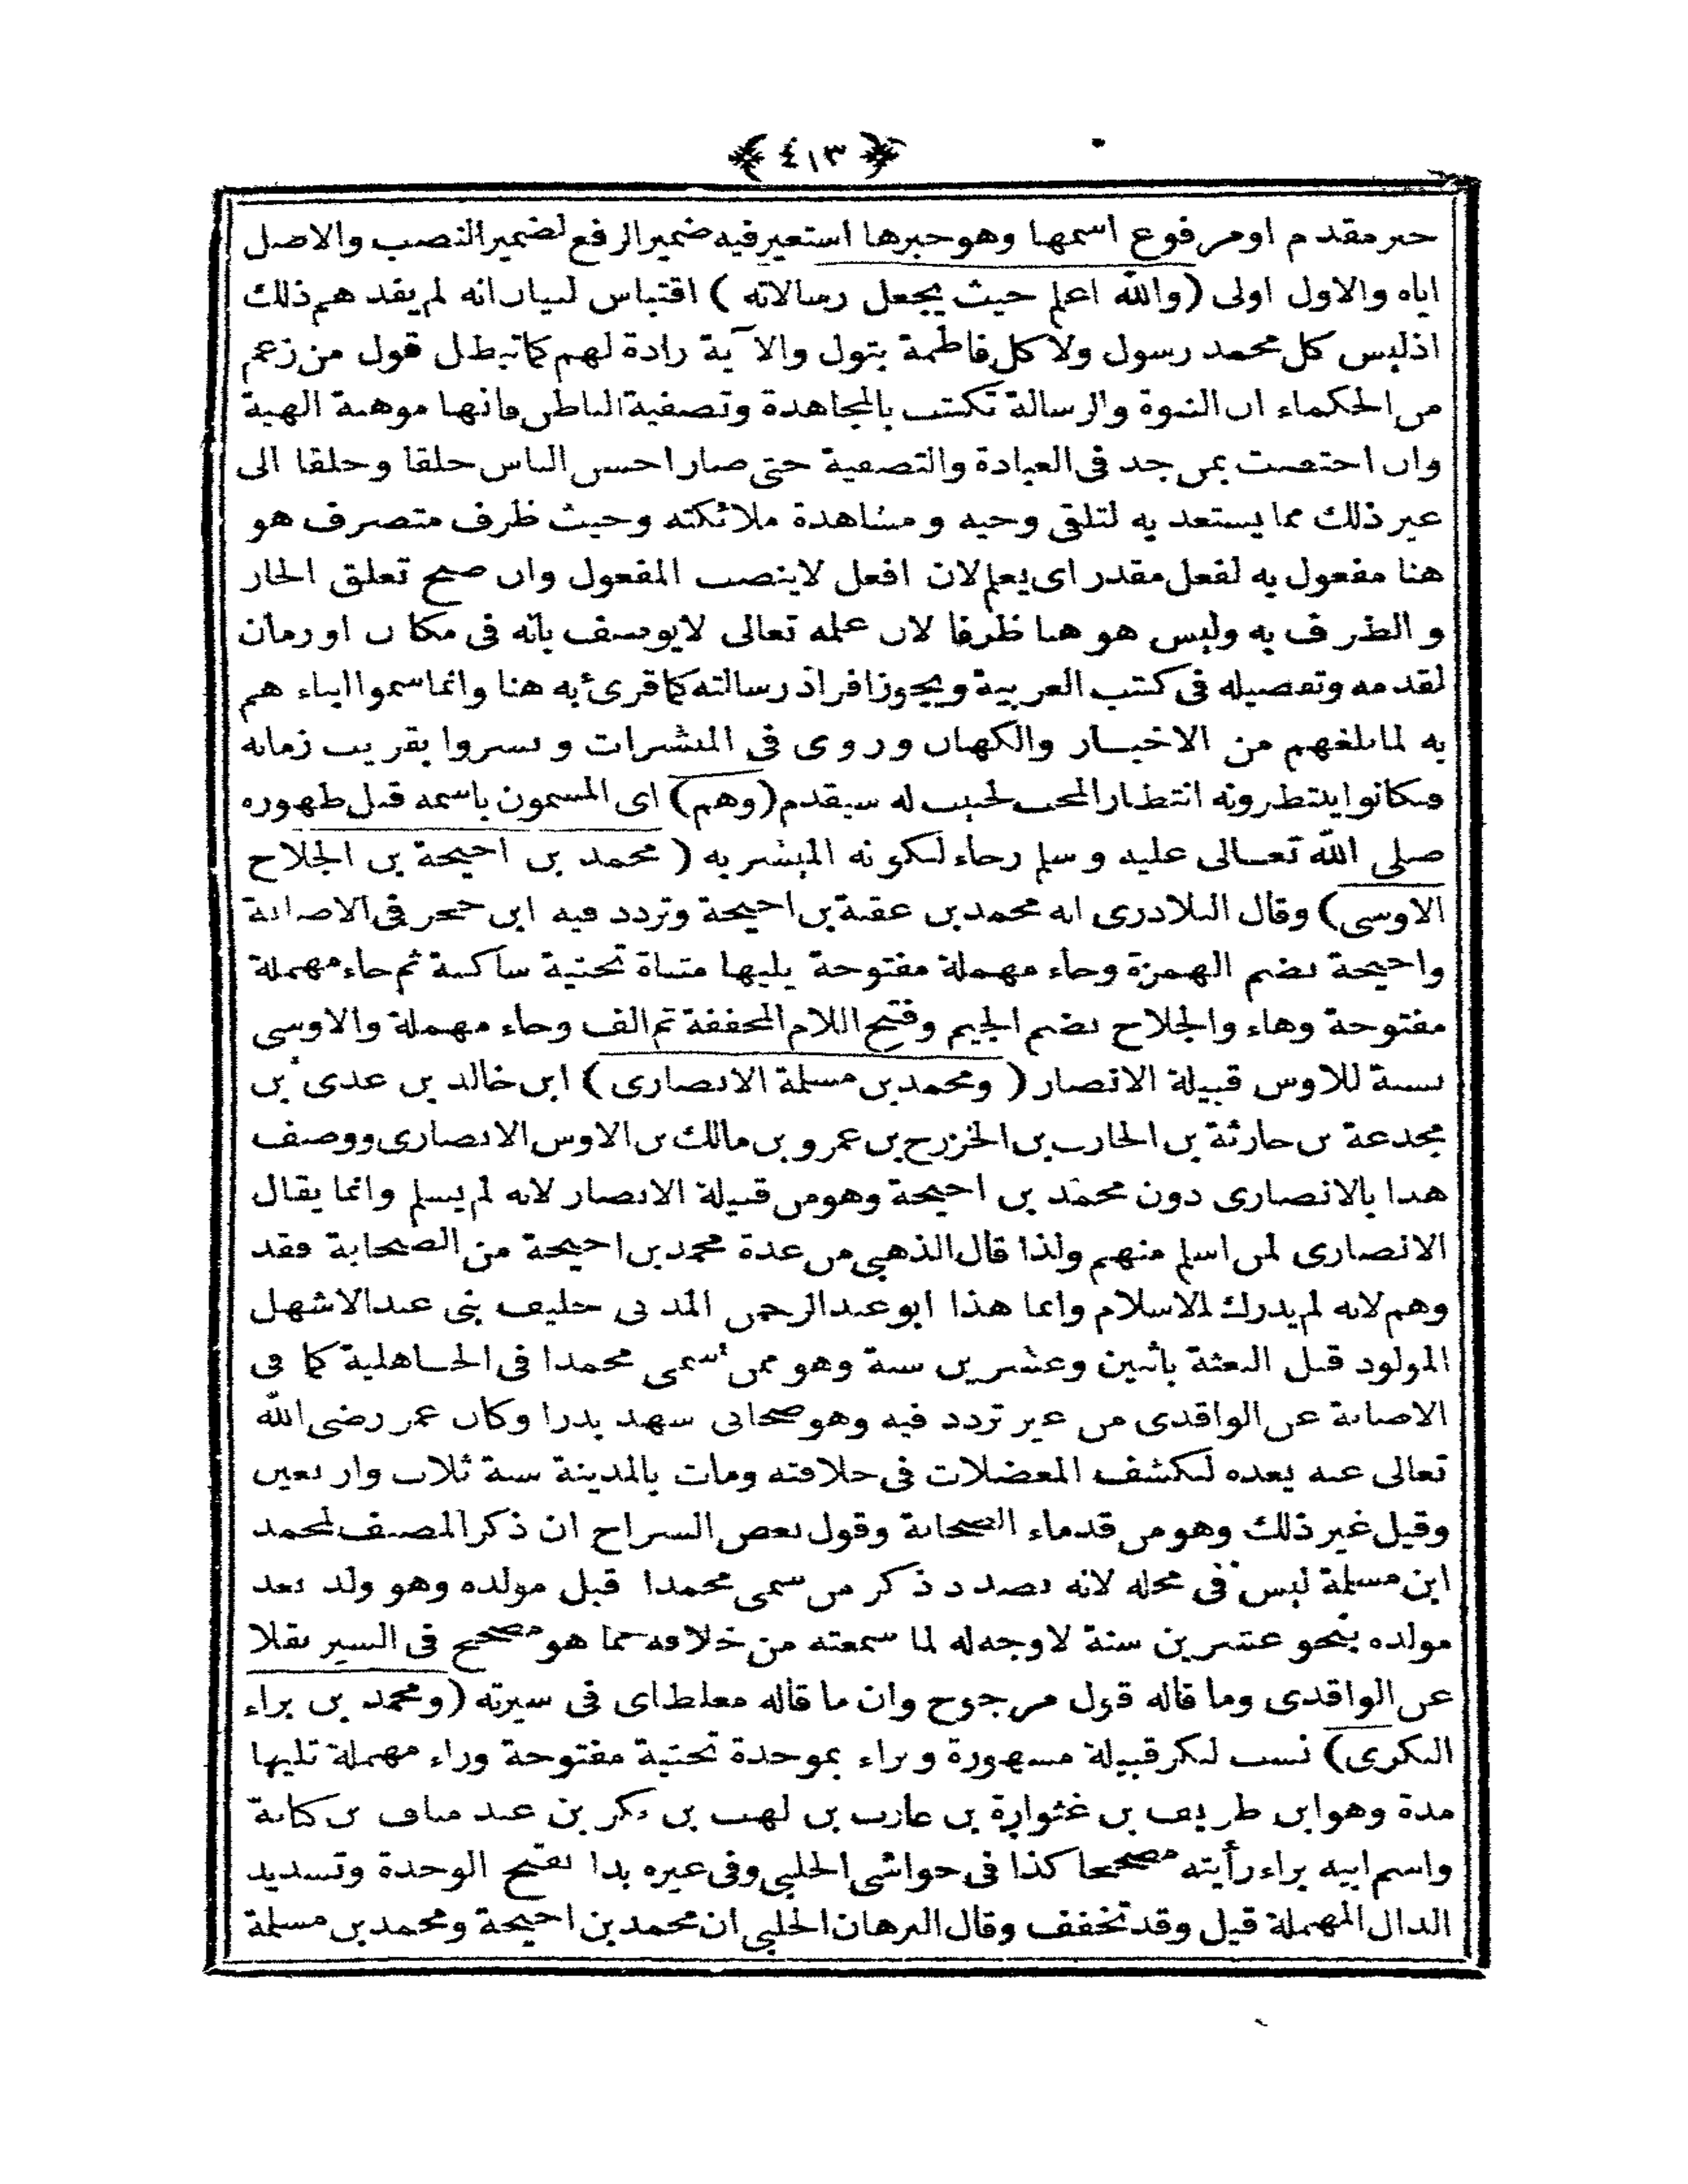 ﴿ ٤١٣ ﴾
خبر مقدم او مرفوع اسمها وهو خبرها استعير فيه ضمير الرفع لضمير النصب والاصل
اياه والاول اولى (والله اعلم حيث يجعل رسالاته) اقتباس لبيان انه لم يفدهم ذلك
اذليس كل محمد رسول ولا كل فاطمة بتول والآية رادة لهم كما تبطل قول من زعم
من الحكماء ان النبوة والرسالة تكتسب بالمجاهدة وتصفية الباطن فانها موهبة الهية
وان اختصت بمن جد فى العبادة والتصفية حتى صار احسن الناس خلقا وخلقا الى
غير ذلك مما يستعد به لتلقى وحيه ومشاهدة ملائكته وحيث ظرف متصرف هو
هنا مفعول به لفعل مقدر اى يعلم لان افعل لاينصب المفعول وان صح تعلق الجار
والظرف به وليس هو هنا ظرفا لان علمه تعالى لايوصف بانه فى مكان او زمان
لقدمه وتفصيله فى كتب العربية ويجوز افراد رسالته كما قرئ به هنا وانما سموا ابناءهم
به لما بلغهم من الاخبار والكهان وروى فى المبشرات وبشروا بقريب زمانه
فكانوا ينتظرونه انتظار المحب لحبيب له سيقدم (وهم) اى المسمون باسمه قبل ظهوره
صلى الله تعالى عليه وسلم رجاء لكونه المبشر به (محمد بن احيحة بن الجلاح
الاوسى) وقال البلاذرى انه محمد بن عقبة بن احيحة وتردد فيه ابن حجر فى الاصابة
واحيحة بضم الهمزة وحاء مهملة مفتوحة يليها مثناة تحتية ساكنة ثم حاء مهملة
مفتوحة وهاء والجلاح بضم الجيم وفتح اللام المخففة ثم الف وحاء مهملة والاوسى
نسبة للاوس قبيلة الانصار (ومحمد بن مسلمة الانصارى) ابن خالد بن عدى بن
مجدعة بن حارثة بن الحارث بن الخزرج بن عمرو بن مالك بن الاوس الانصارى ووصف
هذا بالانصارى دون محمد بن احيحة وهو من قبيلة الانصار لانه لم يسلم وانما يقال
الانصارى لمن اسلم منهم ولذا قال الذهبى من عدة محمد بن احيحة من الصحابة فقد
وهم لانه لم يدرك الاسلام وانما هذا ابو عبد الرحمن المدنى حليف بنى عبد الاشهل
المولود قبل البعثة باثنين وعشرين سنة وهو ممن سمى محمدا فى الجاهلية كما فى
الاصابة عن الواقدى من غير تردد فيه وهو صحابى شهد بدرا وكان عمر رضى الله
تعالى عنه يعده لكشف المعضلات فى خلافته ومات بالمدينة سنة ثلاث واربعين
وقيل غير ذلك وهو من قدماء الصحابة وقول بعض السراح ان ذكر المصنف لمحمد
ابن مسلمة ليس فى محله لانه بصدد ذكر من سمى محمدا قبل مولده وهو ولد بعد
مولده بنحو عشرين سنة لاوجه له لما سمعته من خلافه مما هو مصحح فى السير نقلا
عن الواقدى وما قاله قول مرجوح وان ما قاله مغلطاى فى سيرته (ومحمد بن براء
البكرى) نسب لبكر قبيلة مشهورة وبراء بموحدة تحتية مفتوحة وراء مهملة تليها
مدة وهو ابن طريف بن غثوارة بن عازب بن لهب بن بكر بن عبد مناف بن كنانة
واسم ابيه براء رأيته مصححا كذا فى حواشى الحلبى وفى غيره بدا بفتح الوحدة وتشديد
الدال المهملة قيل وقد تخفف وقال البرهان الحلبى ان محمد بن احيحة ومحمد بن مسلمة